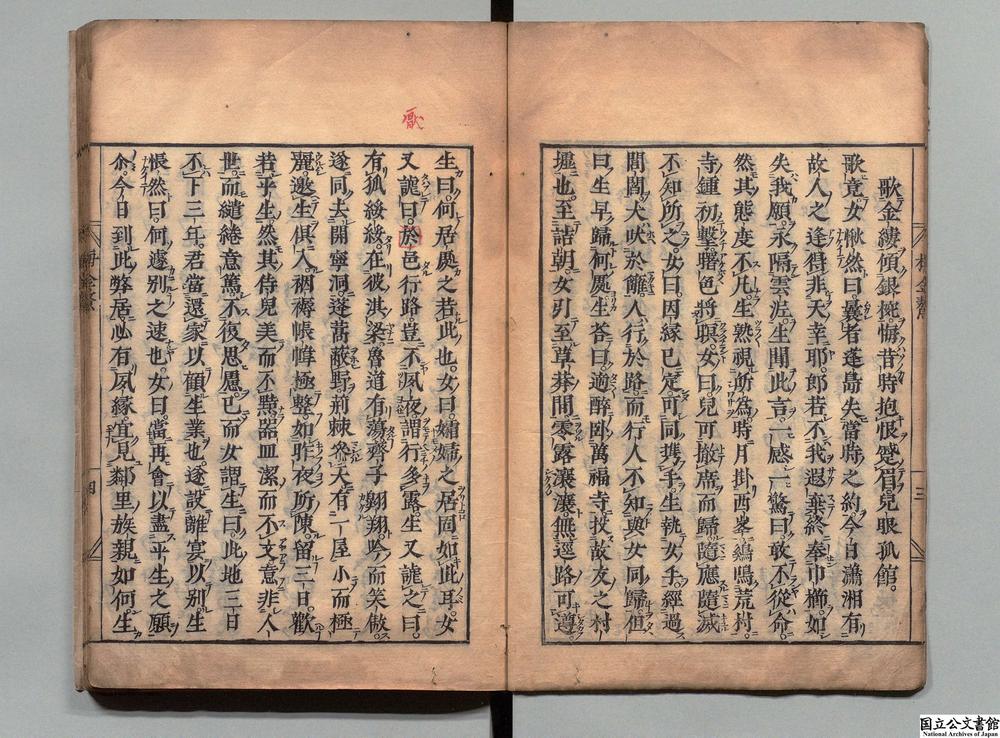 歌金縷傾銀椀悔昔時抱恨蹙眉兒眠孤館。
歌竟。女愀然曰。曩者蓬島失當時之約。今日瀟湘有
故人之逢。得非天幸耶。郎若不我遐棄。終奉巾櫛。如
失我願。永隔雲泥。生聞此言。一感一驚曰。敢不從命。
然其態度不凡。生熟視所為。時月掛西峯。鷄鳴荒村。
寺鍾初擊。曙色將暝。女曰。兒可撤席而歸。隨應隨滅
不知所之。女曰。因緣已定。可同携手。生執女手。經過
閭閻。犬吠於籬。人行於路。而行人不知與女同歸。但
曰。生早歸何處。生荅曰。適醉卧萬福寺。投故友之村
墟也。至詰朝。女引至草莽間。零露瀼瀼。無逕路可遵。
三
生曰。何居處之若此也。女曰。孀婦之居。固如此耳。女
又謔曰。於邑行路。豈不夙夜。謂行多露。生又謔之曰。
有狐綏綏。在彼淇梁。魯道有蕩。齊子翺翔。吟而笑傲。
遂同去開寧洞。蓬蒿蔽野。荊棘參天。有一屋。小而極
麗。邀生俱入。裀褥帳幃極整。如昨夜所陳。留三日。歡
若乎生。然其侍兒。美而不黠。器皿潔而不文。意非人
世。而繾綣意篤。不復思慮。已而女謂生曰。此地三日
不下三年。君當還家。以顧生業也。遂設離宴以別。生
悵然曰。何遽別之速也。女曰。當再會以盡平生之願
尒。今日到此弊居。必有夙緣。宜見鄰里族親如何。生
四
厭
国立公文書館
National Archives of Japan